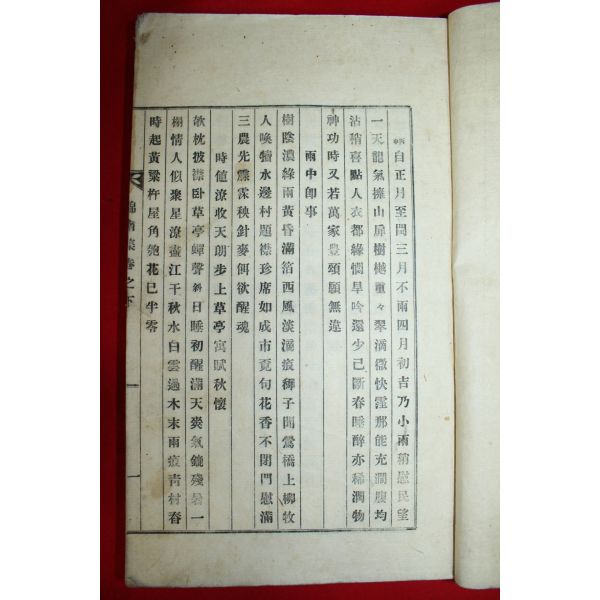 自正月至閏三月不雨四月初吉乃小雨稍慰民望
一天龍氣擁山扉樹樾重々翠滴微快霔那能充澗腹均
沾稍喜點人衣都緣憫旱吟還少已斷春睡醉亦稀潤物
神功時又若萬家豊頌願無違
雨中卽事
樹陰濃綠雨黃昏滿笛西風淡滴痕穉子聞鶯橋上柳牧
人喚犢水邊村題襟珍席如成市覓句花香不閉門慰滿
三農先霡霂秧針麥餌欲醒魂
時値潦收天朗步上草亭寓賦秋懷
欹枕披襟卧草亭蟬聲斜日睡初醒滿天爽氣鏖殘暑一
榻情人似聚星潦盡江干秋水白雲過木末雨痕靑村舂
時起黃粱杵屋角匏花已半零
錦南集卷之下
一